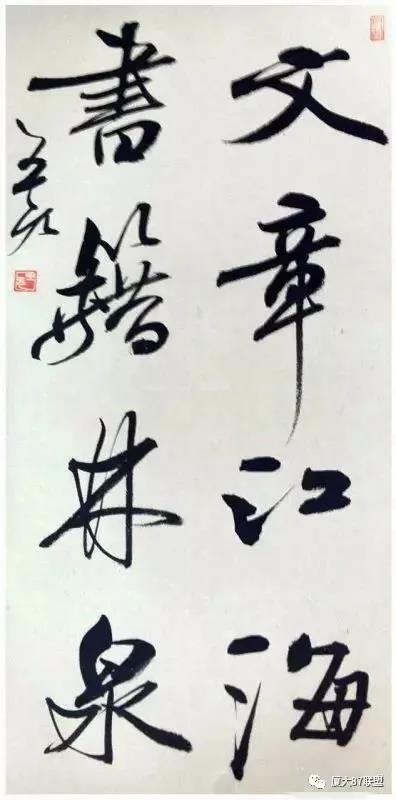 文章江海
書籍林泉
厦大87联盟